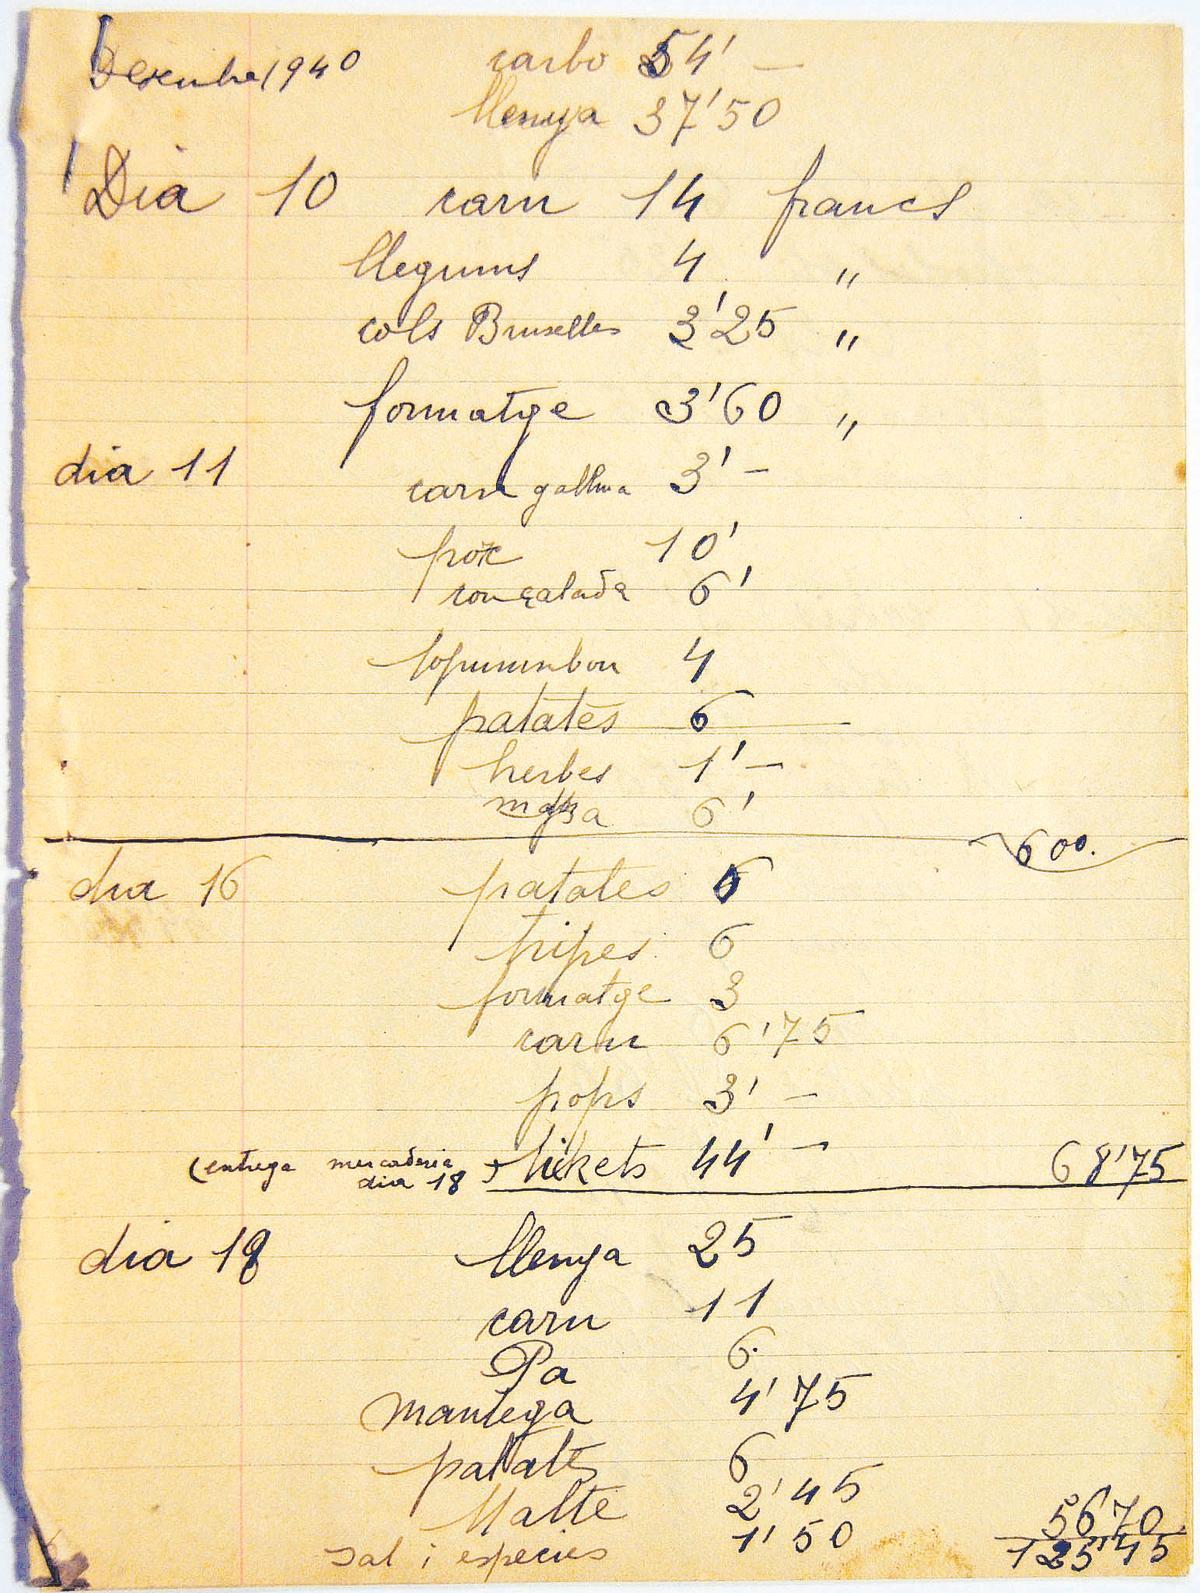 Desembre 1940 carbo 54' —
llenya 37'50
Dia 10 carn 14 francs
llegums 4 "
cols Bruselles 3'25 "
formatge 3'60 "
dia 11 carn gallina 3' —
porc 10'
conçalada 6'
topinambou 4
patates 6
herbes 1' —
6'
600.
dia 16 patates 6
tripes 6
formatge 3
carn 6'75
pops 3' —
(entrega mercaderia dia 18) tikets 44' — 68'75
dia 18 llenya 25
carn 11
Pa 6.
mantega 4'75
patates 6
Malte 2'45 5670
sal i especies 1'50 125'45